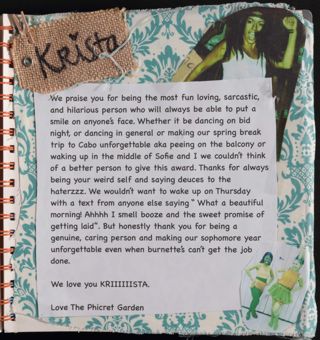 Krista
We praise you for being the most fun loving, sarcastic,
and hilarious person who will always be able to put a
smile on anyone's face. Whether it be dancing on bid
night, or dancing in general or making our spring break
trip to Cabo unforgettable aka peeing on the balcony or
waking up in the middle of Sofie and I we couldn't think
of a better person to give this award. Thanks for always
being your weird self and saying deuces to the
haterzzz. We wouldn't want to wake up on Thursday
with a text from anyone else saying " What a beautiful
morning! Ahhhh I smell booze and the sweet promise of
getting laid". But honestly thank you for being a
genuine, caring person and making our sophomore year
unforgettable even when burnette's can't get the job
done.
We love you KRIIIIIISTA.
Love The Phicret Garden